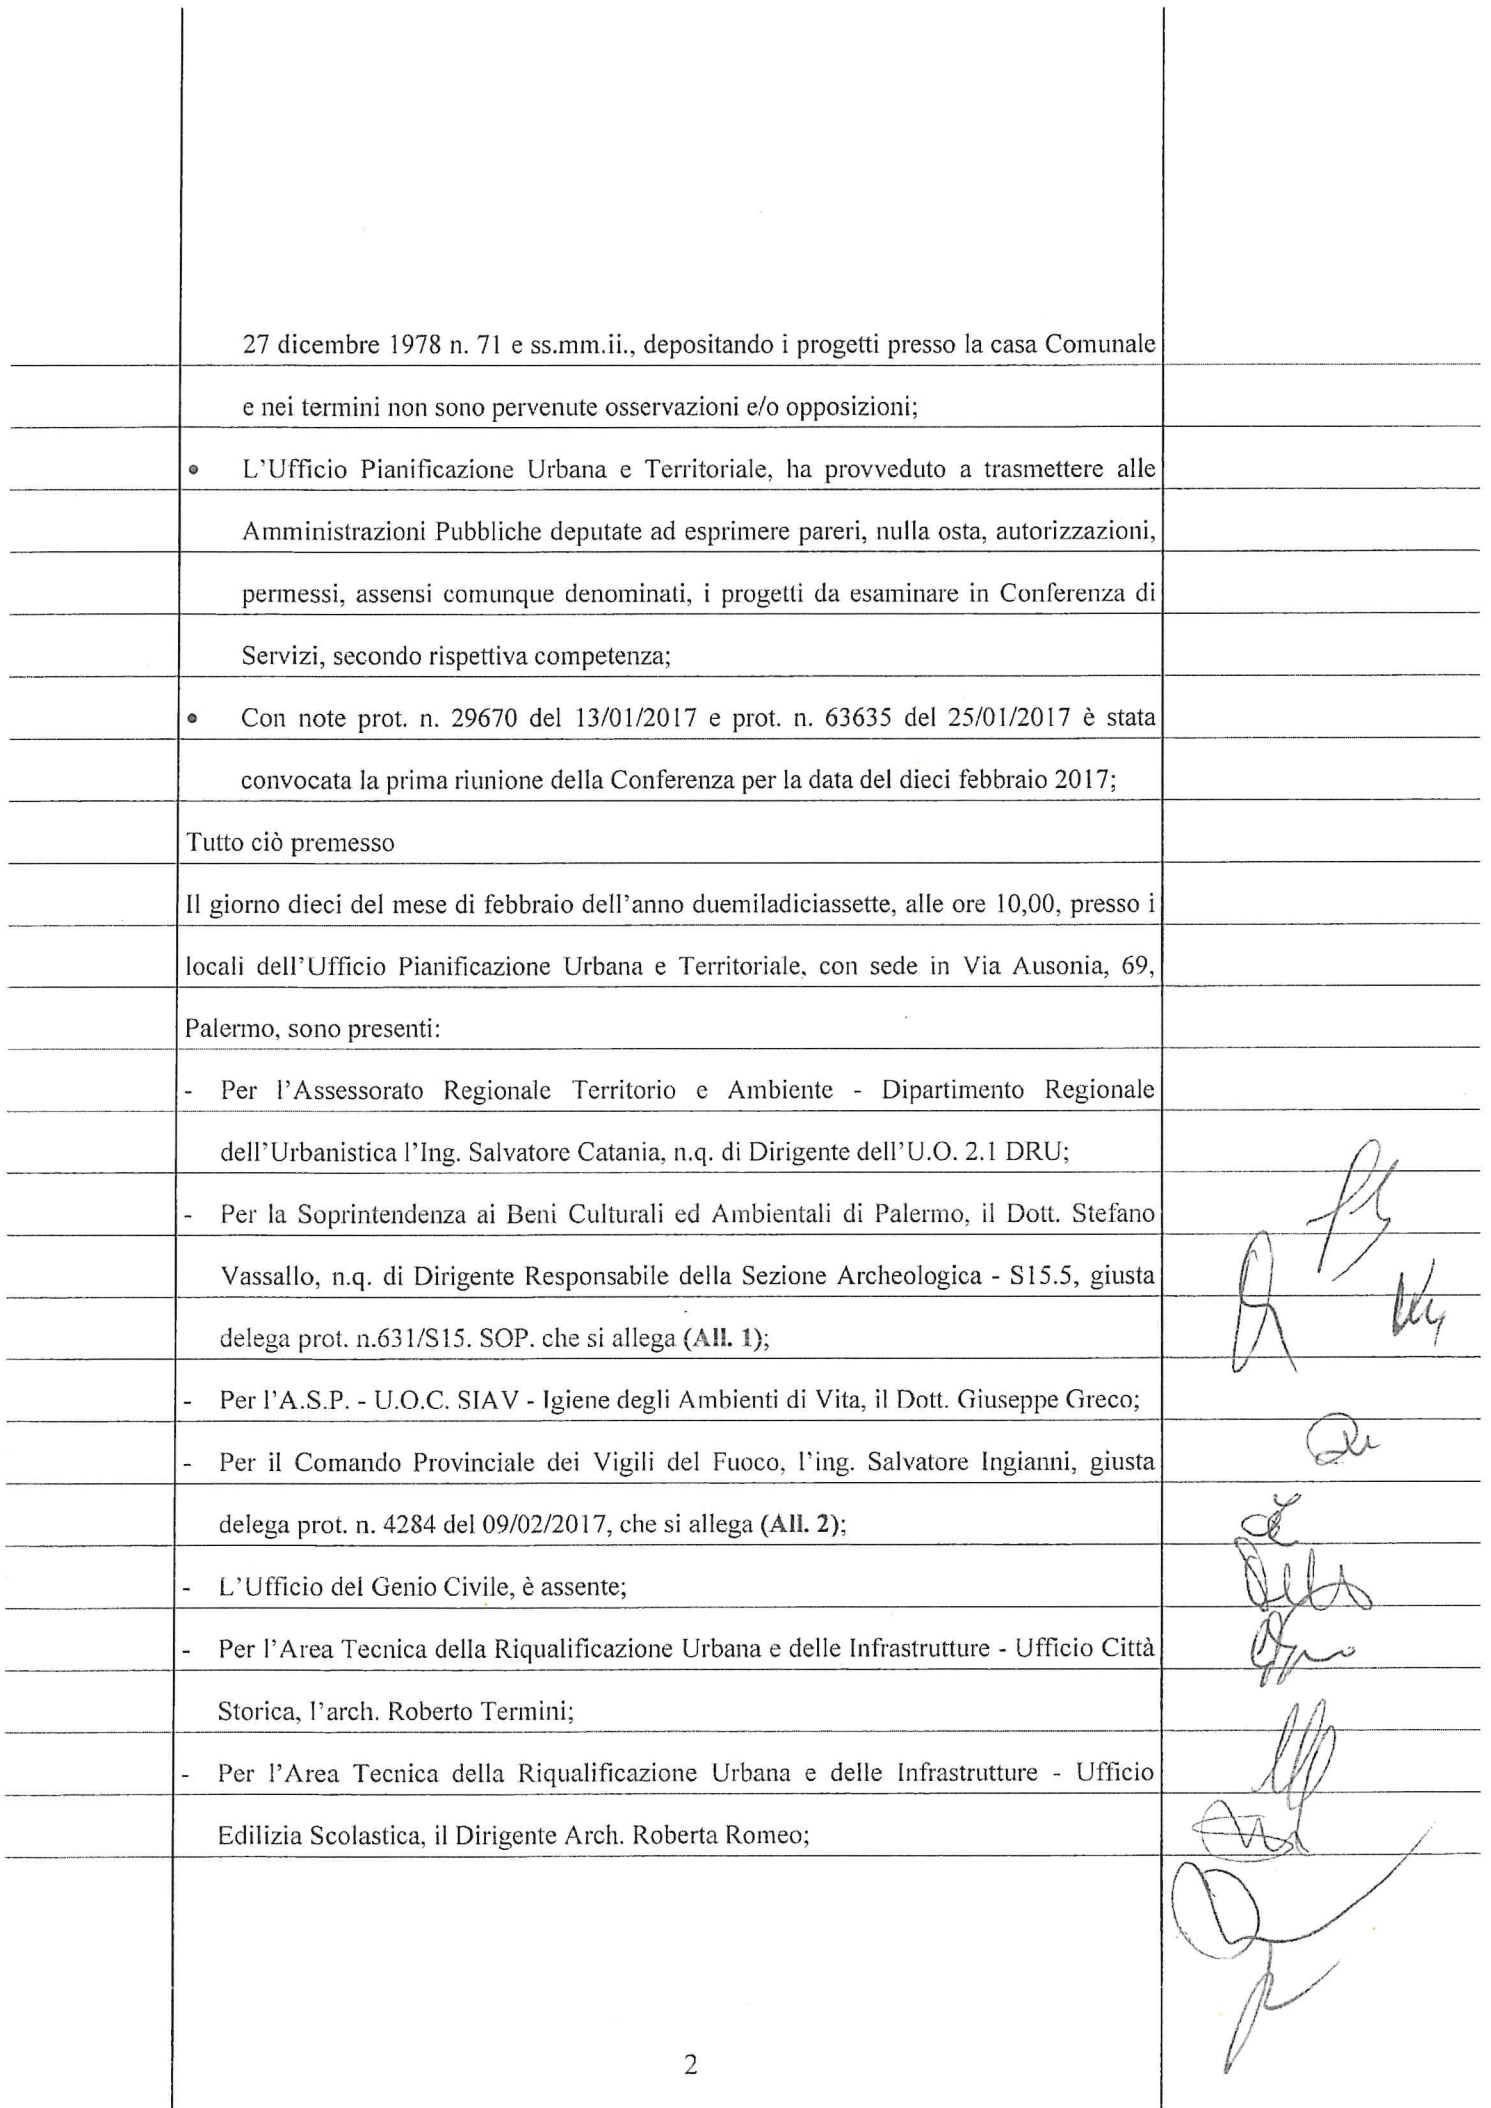 27 dicembre 1978 n. 71 e ss.mm.ii., depositando i progetti presso la casa Comunale
e nei termini non sono pervenute osservazioni e/o opposizioni;
• L'Ufficio Pianificazione Urbana e Territoriale, ha provveduto a trasmettere alle
Amministrazioni Pubbliche deputate ad esprimere pareri, nulla osta, autorizzazioni,
permessi, assensi comunque denominati, i progetti da esaminare in Conferenza di
Servizi, secondo rispettiva competenza;
• Con note prot. n. 29670 del 13/01/2017 e prot. n. 63635 del 25/01/2017 è stata
convocata la prima riunione della Conferenza per la data del dieci febbraio 2017;
Tutto ciò premesso
Il giorno dieci del mese di febbraio dell'anno duemiladiciassette, alle ore 10,00, presso i
locali dell'Ufficio Pianificazione Urbana e Territoriale, con sede in Via Ausonia, 69,
Palermo, sono presenti:
- Per l'Assessorato Regionale Territorio e Ambiente - Dipartimento Regionale
dell'Urbanistica l'Ing. Salvatore Catania, n.q. di Dirigente dell'U.O. 2.1 DRU;
- Per la Soprintendenza ai Beni Culturali ed Ambientali di Palermo, il Dott. Stefano
Vassallo, n.q. di Dirigente Responsabile della Sezione Archeologica - S15.5, giusta
delega prot. n.631/S15. SOP. che si allega (All. 1);
- Per l'A.S.P. - U.O.C. SIAV - Igiene degli Ambienti di Vita, il Dott. Giuseppe Greco;
- Per il Comando Provinciale dei Vigili del Fuoco, l'ing. Salvatore Ingianni, giusta
delega prot. n. 4284 del 09/02/2017, che si allega (All. 2);
- L'Ufficio del Genio Civile, è assente;
- Per l'Area Tecnica della Riqualificazione Urbana e delle Infrastrutture - Ufficio Città
Storica, l'arch. Roberto Termini;
- Per l'Area Tecnica della Riqualificazione Urbana e delle Infrastrutture - Ufficio
Edilizia Scolastica, il Dirigente Arch. Roberta Romeo;
2